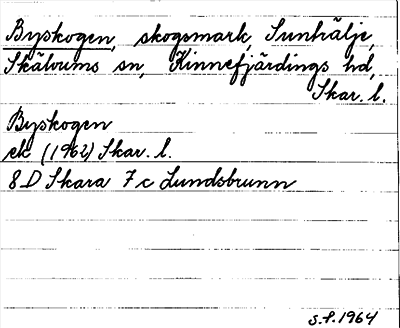 Byskogen, skogsmark, Sunträlje,
Skälvums sn, Kinnefjärdings hd,
Skar. l.
Byskogen
ek (1962) Skar. l.
8 D Skara 7 c Lundsbrunn
S.f. 1964